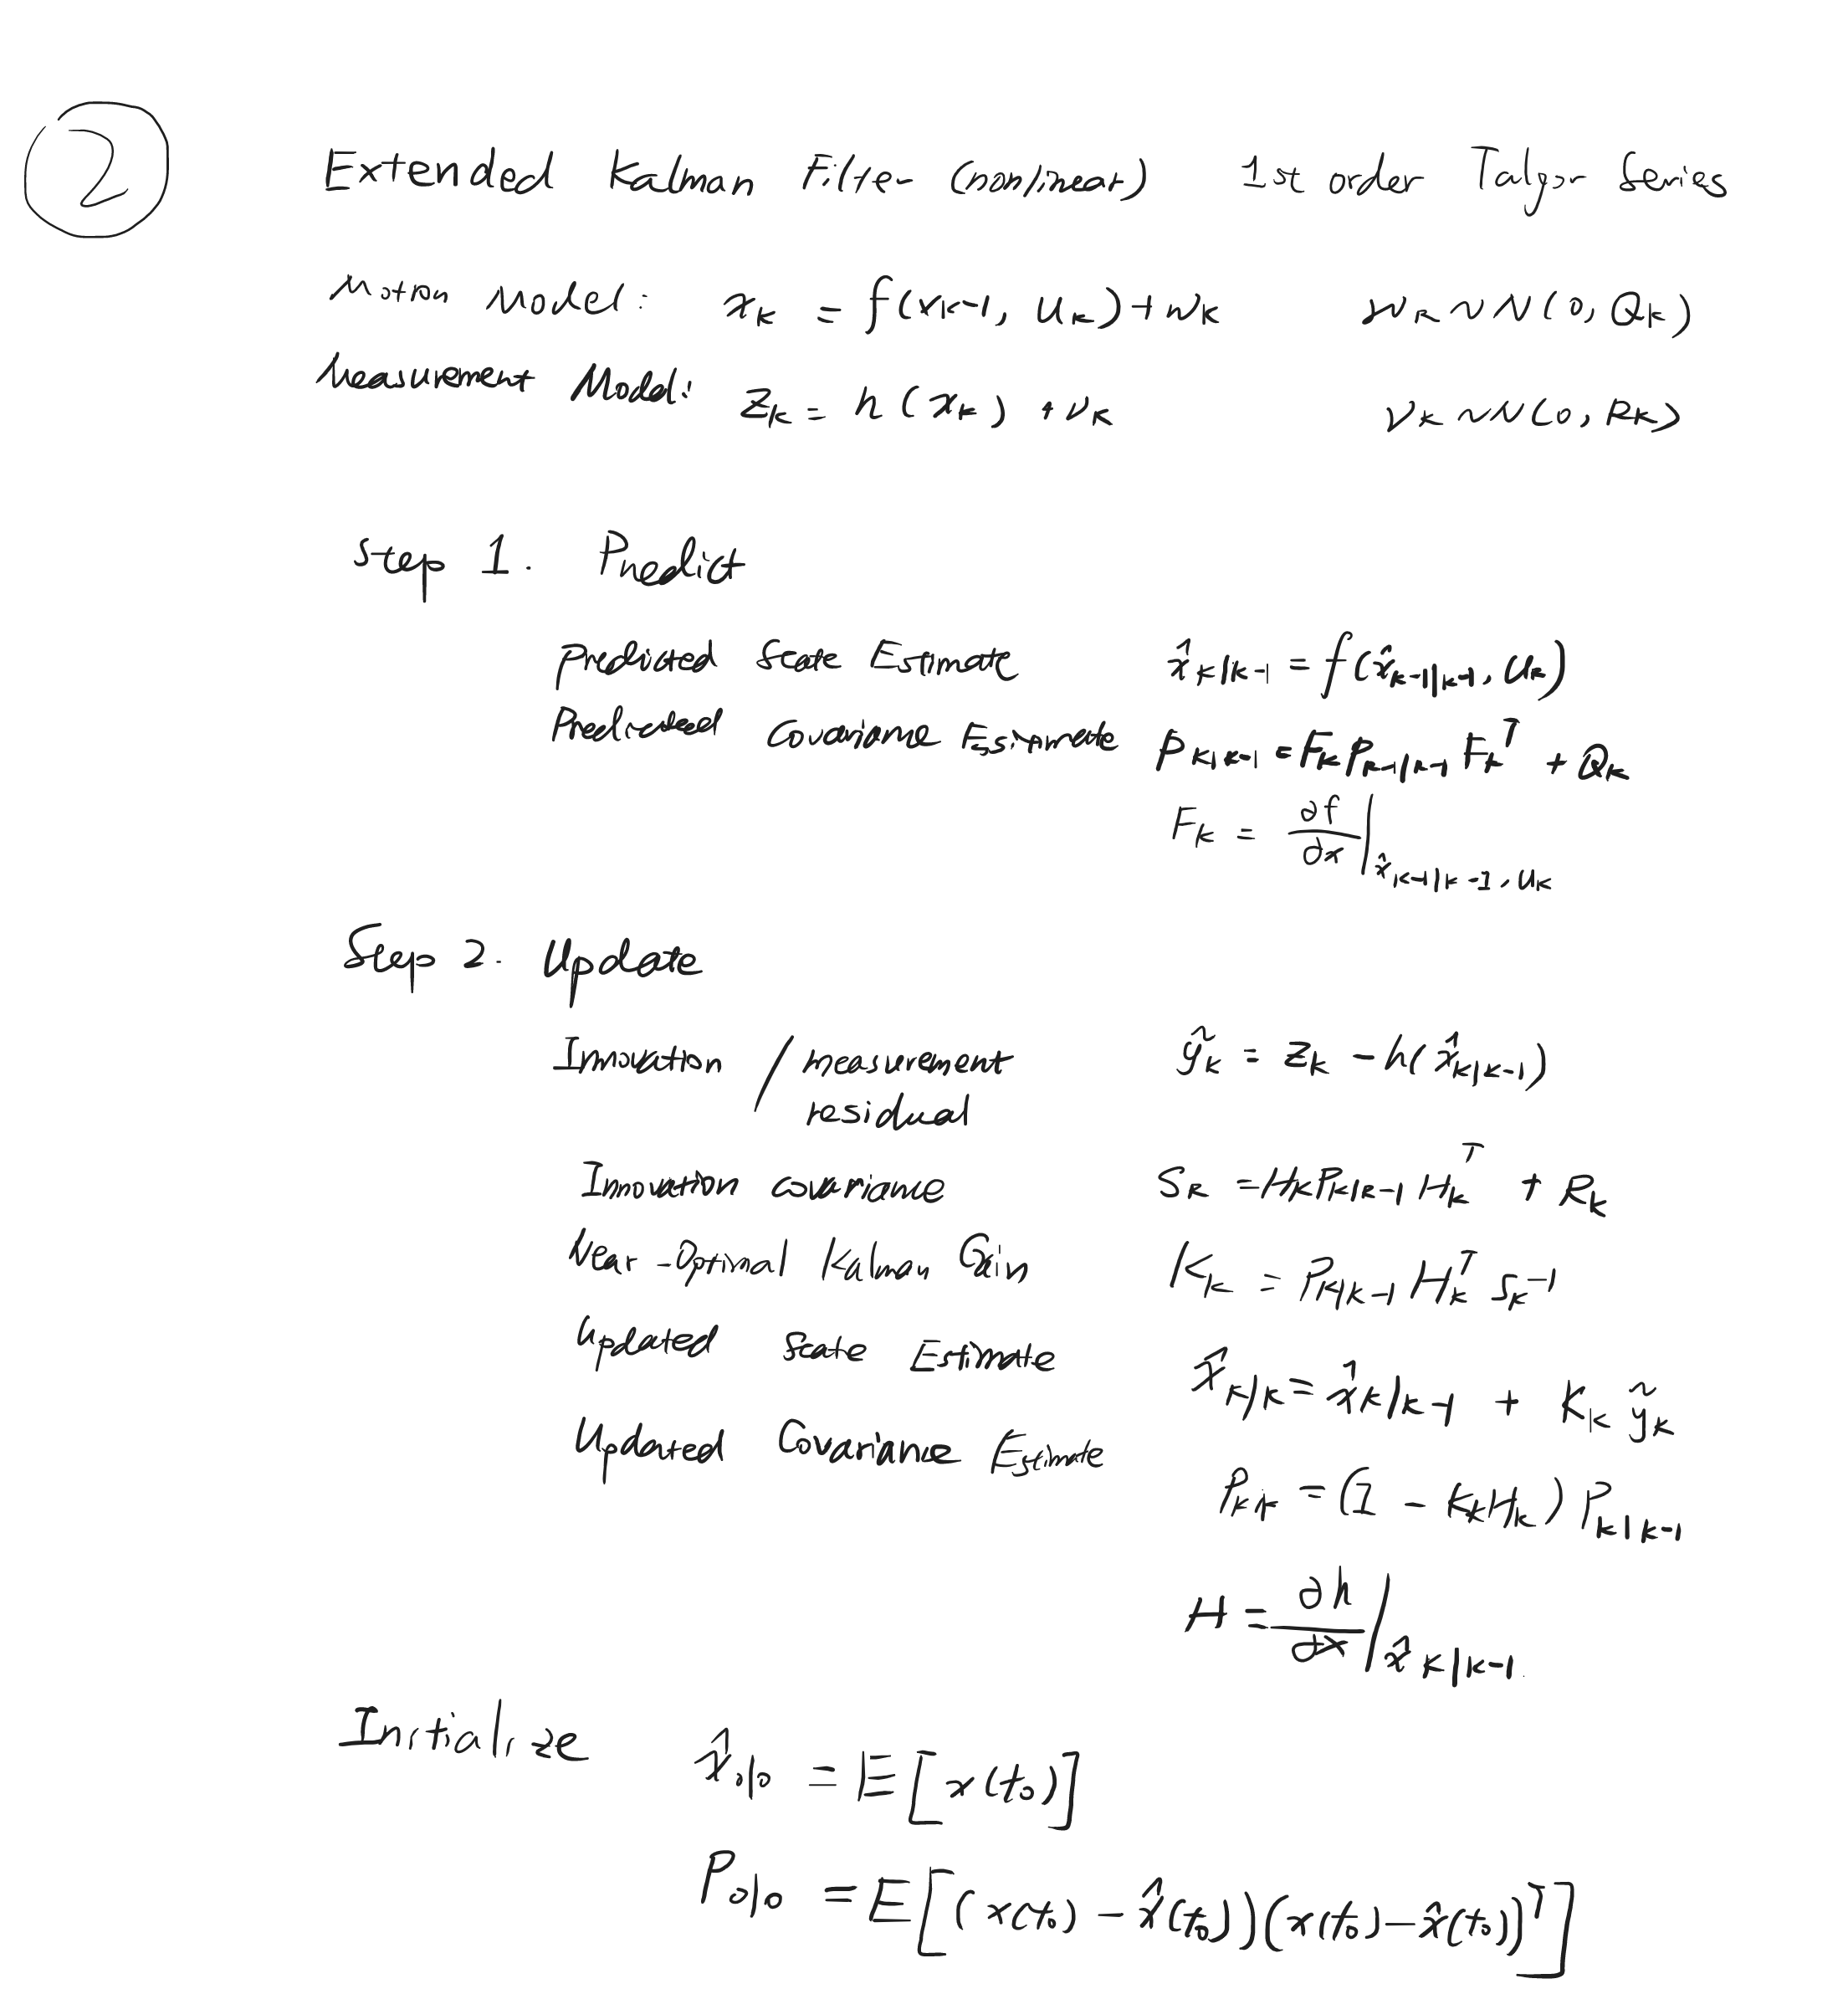 2
Extended Kalman Filter (nonlinear) 1st order Taylor Series
Motion Model: x_k = f(x_{k-1}, u_k) + w_k w_k ~ N(0, Q_k)
Measurement Model: z_k = h(x_k) + ν_k ν_k ~ N(0, R_k)
Step 1. Predict
Predicted State Estimate x̂_{k|k-1} = f(x̂_{k-1|k-1}, u_k)
Predicted Covariance Estimate P_{k|k-1} = F_k P_{k-1|k-1} F_k^T + Q_k
F_k = ∂f/∂x |_{x̂_{k-1|k-1}, u_k}
Step 2. Update
Innovation / measurement ỹ_k = z_k - h(x̂_{k|k-1})
residual
Innovation covariance S_k = H_k P_{k|k-1} H_k^T + R_k
Near-Optimal Kalman Gain K_k = P_{k|k-1} H_k^T S_k^{-1}
Updated State Estimate x̂_{k|k} = x̂_{k|k-1} + K_k ỹ_k
Updated Covariance Estimate
P_{k|k} = (I - K_k H_k) P_{k|k-1}
H = ∂h/∂x |_{x̂_{k|k-1}}
Initialize x̂_{0|0} = E[x(t_0)]
P_{0|0} = E[(x(t_0) - x̂(t_0))(x(t_0) - x̂(t_0))^T]